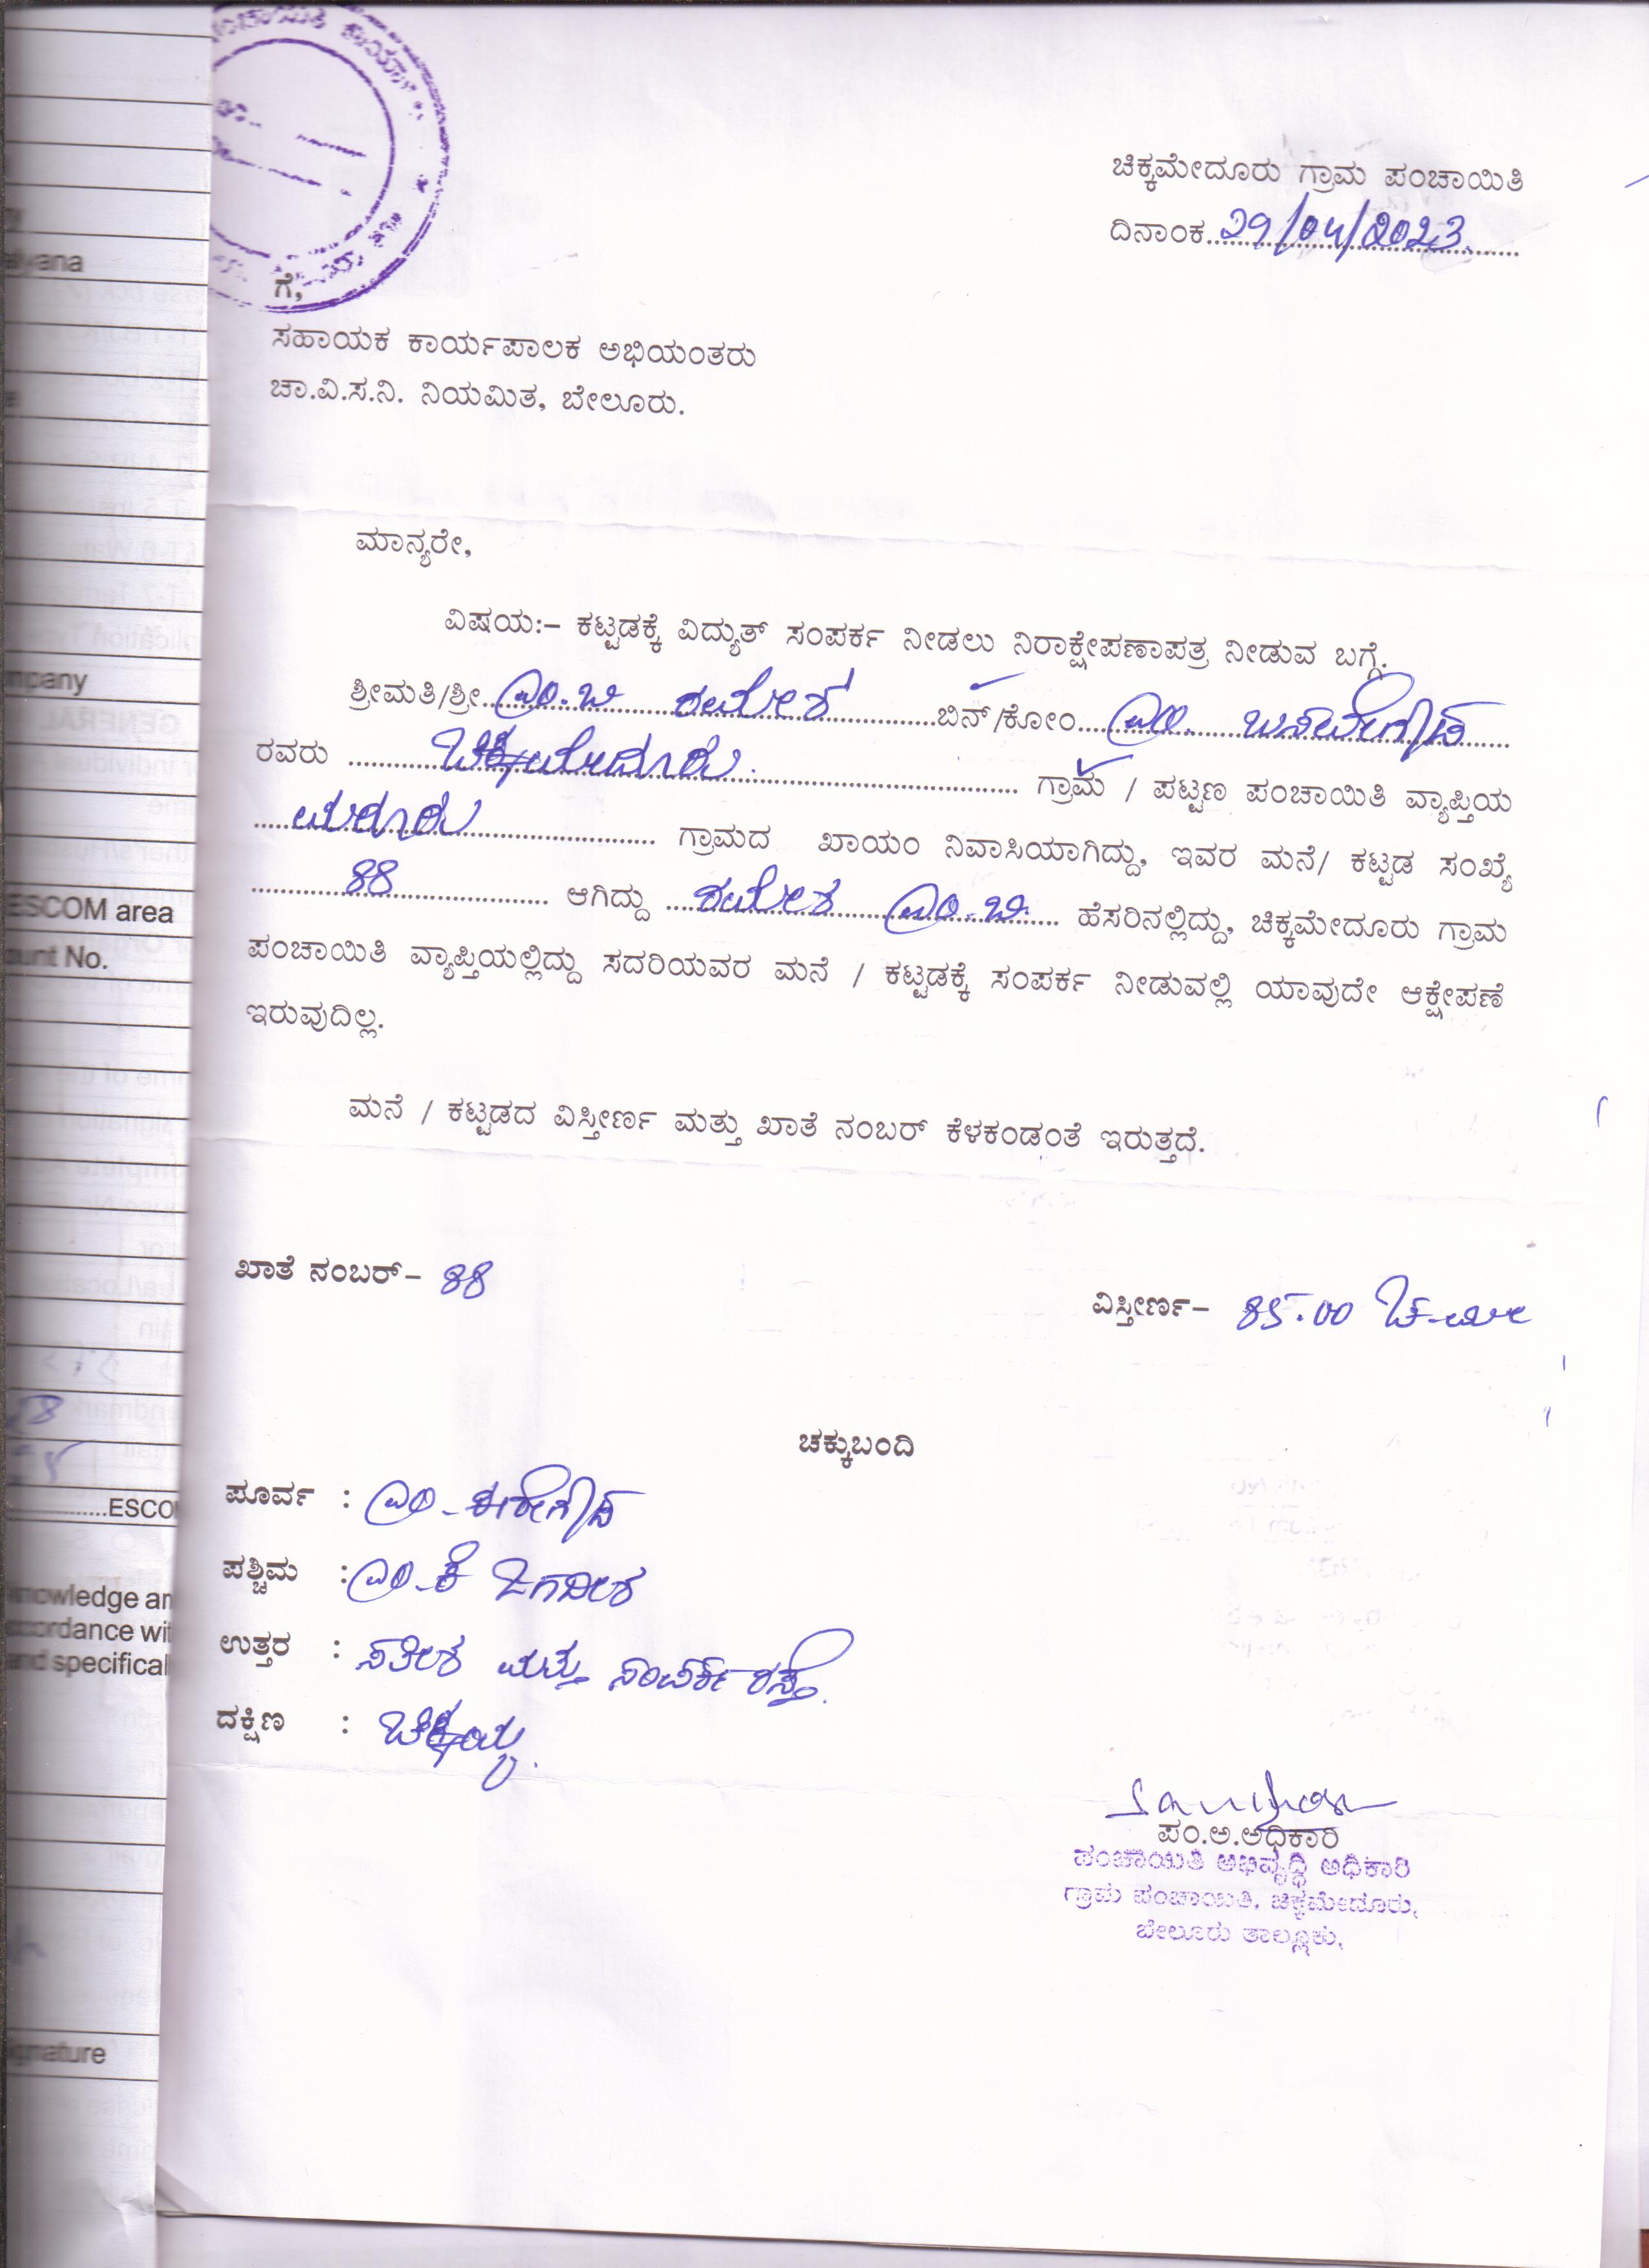 ಚಿಕ್ಕಮೇದೂರು ಗ್ರಾಮ ಪಂಚಾಯಿತಿ
ದಿನಾಂಕ 29/04/2023
ಗೆ,
ಸಹಾಯಕ ಕಾರ್ಯಪಾಲಕ ಅಭಿಯಂತರು
ಚಾ.ವಿ.ಸ.ನಿ. ನಿಯಮಿತ, ಬೇಲೂರು.
ಮಾನ್ಯರೇ,
ವಿಷಯ:– ಕಟ್ಟಡಕ್ಕೆ ವಿದ್ಯುತ್ ಸಂಪರ್ಕ ನೀಡಲು ನಿರಾಕ್ಷೇಪಣಾಪತ್ರ ನೀಡುವ ಬಗ್ಗೆ.
ಶ್ರೀಮತಿ/ಶ್ರೀ ಎಂ.ಬಿ ರಮೇಶ ಬಿನ್/ಕೋಂ ಎಂ. ಬಸವೇಗೌಡ
ರವರು ಚಿಕ್ಕಮೇದೂರು. ಗ್ರಾಮ / ಪಟ್ಟಣ ಪಂಚಾಯಿತಿ ವ್ಯಾಪ್ತಿಯ
ಗ್ರಾಮದ ಖಾಯಂ ನಿವಾಸಿಯಾಗಿದ್ದು, ಇವರ ಮನೆ/ ಕಟ್ಟಡ ಸಂಖ್ಯೆ
88 ಆಗಿದ್ದು ರಮೇಶ ಎಂ.ಬಿ. ಹೆಸರಿನಲ್ಲಿದ್ದು, ಚಿಕ್ಕಮೇದೂರು ಗ್ರಾಮ
ಪಂಚಾಯಿತಿ ವ್ಯಾಪ್ತಿಯಲ್ಲಿದ್ದು ಸದರಿಯವರ ಮನೆ / ಕಟ್ಟಡಕ್ಕೆ ಸಂಪರ್ಕ ನೀಡುವಲ್ಲಿ ಯಾವುದೇ ಆಕ್ಷೇಪಣೆ
ಇರುವುದಿಲ್ಲ.
ಮನೆ / ಕಟ್ಟಡದ ವಿಸ್ತೀರ್ಣ ಮತ್ತು ಖಾತೆ ನಂಬರ್ ಕೆಳಕಂಡಂತೆ ಇರುತ್ತದೆ.
ಖಾತೆ ನಂಬರ್– 88
ವಿಸ್ತೀರ್ಣ– 85.00 ಚ.ಮೀ
ಚಕ್ಕುಬಂದಿ
ಪೂರ್ವ : ಎಂ.
ಪಶ್ಚಿಮ : ಎಂ.ಕೆ ಜಗದೀಶ
ಉತ್ತರ : ಸತೀಶ ಮತ್ತು ಸಂಪರ್ಕ ರಸ್ತೆ.
ದಕ್ಷಿಣ : ಚಿಕ್ಕಯ್ಯ.
ಪಂ.ಅ.ಅಧಿಕಾರಿ
ಪಂಚಾಯಿತಿ ಅಭಿವೃದ್ಧಿ ಅಧಿಕಾರಿ
ಗ್ರಾಮ ಪಂಚಾಯಿತಿ, ಚಿಕ್ಕಮೇದೂರು,
ಬೇಲೂರು ತಾಲ್ಲೂಕು,
mpany
ESCOM area
ount No.
ESCO
nowledge an
cordance wit
nd specifical
gnature